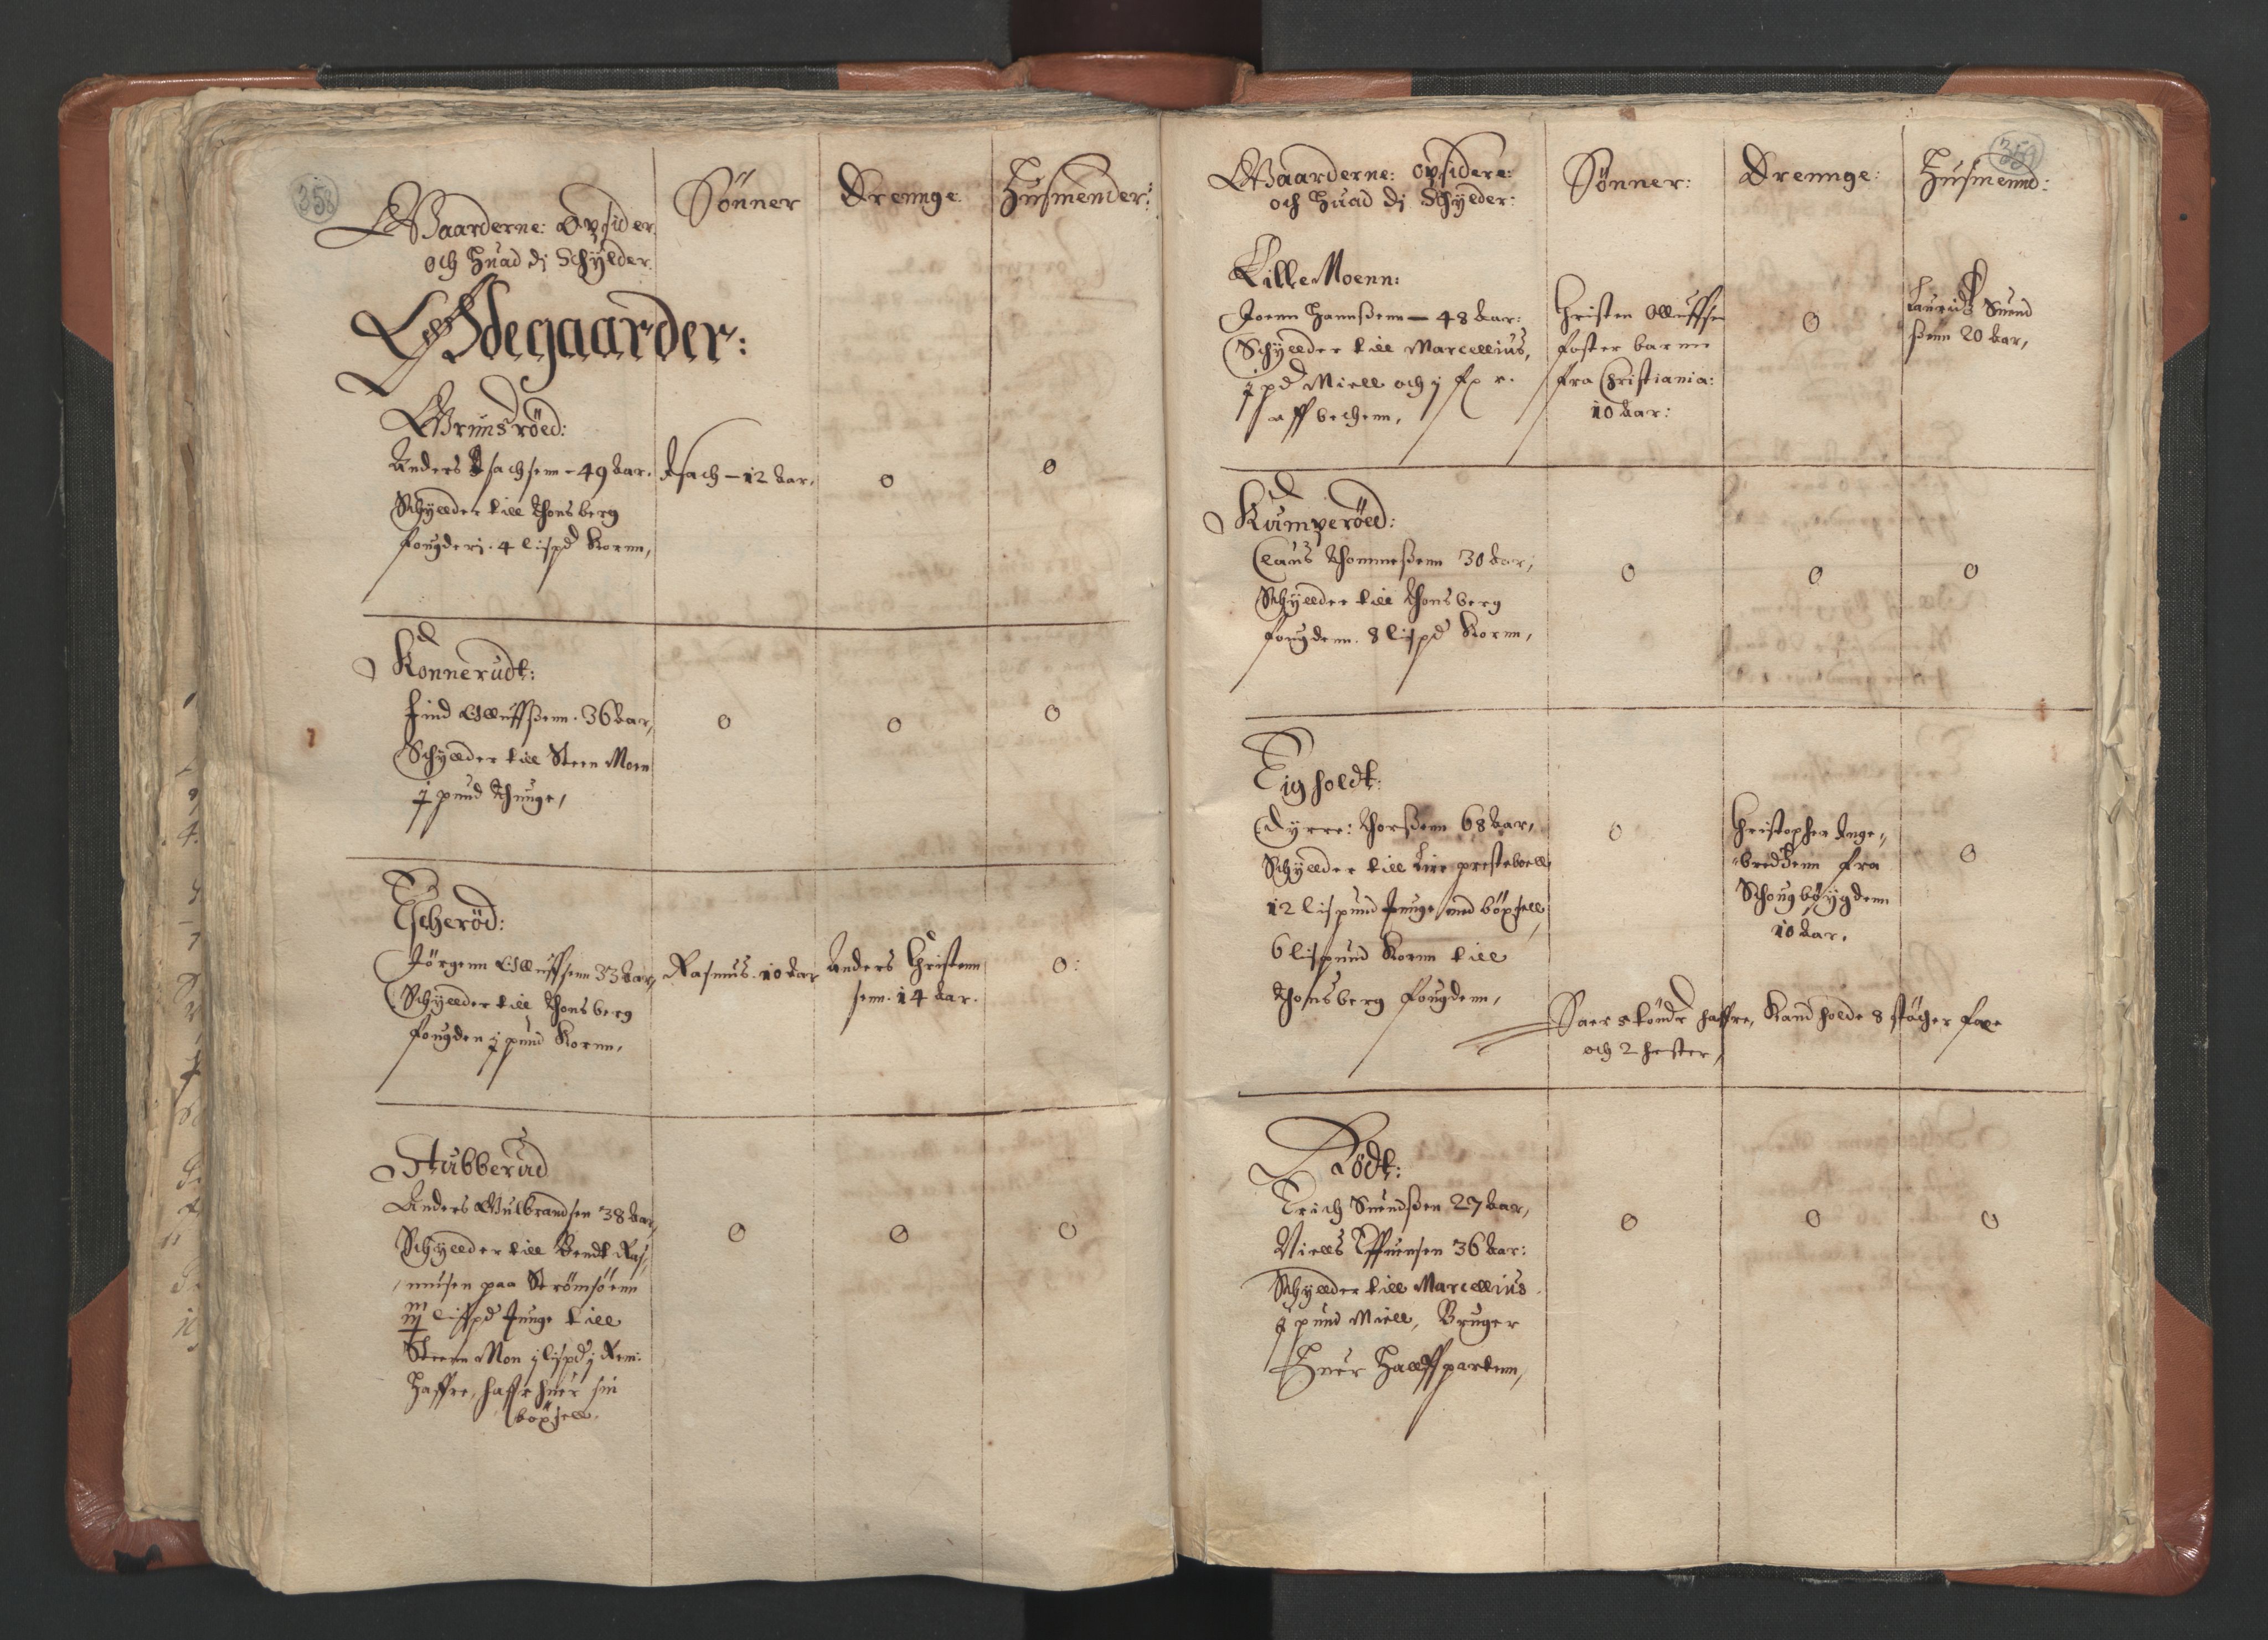 358
Gaarderne: Opsider
och Huad dj Schylder.
Sönner
Drennge.
Husmender:
Ødegaarder:
Grimsröed:
Anders Isachsenn - 49 aar.
Schyllder till Thonsberg
fougderj. 4 lispd Kornn,
Isach - 12 aar,
0
0
Konnerudt:
Find Olluffsenn. 36 aar,
Schyllder till Steen Moen
j pund Thunge,
0
0
0
Escheröd:
Jörgenn Olluffsenn 33 aar,
Schyllder till Thonsberg
fougden j pund Kornn,
Rasmus. 10 aar
Anders Christenn
senn. 14 aar.
0:
Stubberud
Anders Gulbrandsen 38 aar,
Schyllder till Bendt Ras,
musen paa Strömsöenn
lisspd tunge till
Steenn Mon j lispd j Rem:
Haffre, haffr huer sin
böxsell.
0
0
0
359
Gaarderne: Opsidere:
och Huad dj Schylder:
Sönner:
Drennge:
Husmennd:
Lille Moenn:
Joenn Hannsenn - 48 aar:
Schyllder till Marcellius,
j pd Miell och j
aff bechenn,
Christen Olluffsen
foster barnn
fra Christiania:
10 aar:
0
Lauridz Suend
ßenn 20 aar,
Kumperöed:
Claus Thommeßenn 30 aar,
Schyllder till Thonsberg
fougdenn. 8 lispd Kornn,
0
0
0
Eigholdt:
Dyrre: Thorßenn 68 aar,
Schyllder till Lier presteboell
12 lispund tunge med böxsell,
6 lispund Kornn till
Thonsberg fougdenn,
0
Christopher Inge,,
bredßenn fra
Schougbøygdenn
10 aar.
0
Saer 5 tönder haffre, Kand holde 8 støcher fæe
och 2 hester,
Rödt:
Erich Suendßen 27 aar,
Niells Effuensen 36 aar:
Schyllder till Marcellius
j pund Miell, Bruger
Huer Hallffpartenn,
0
0
0